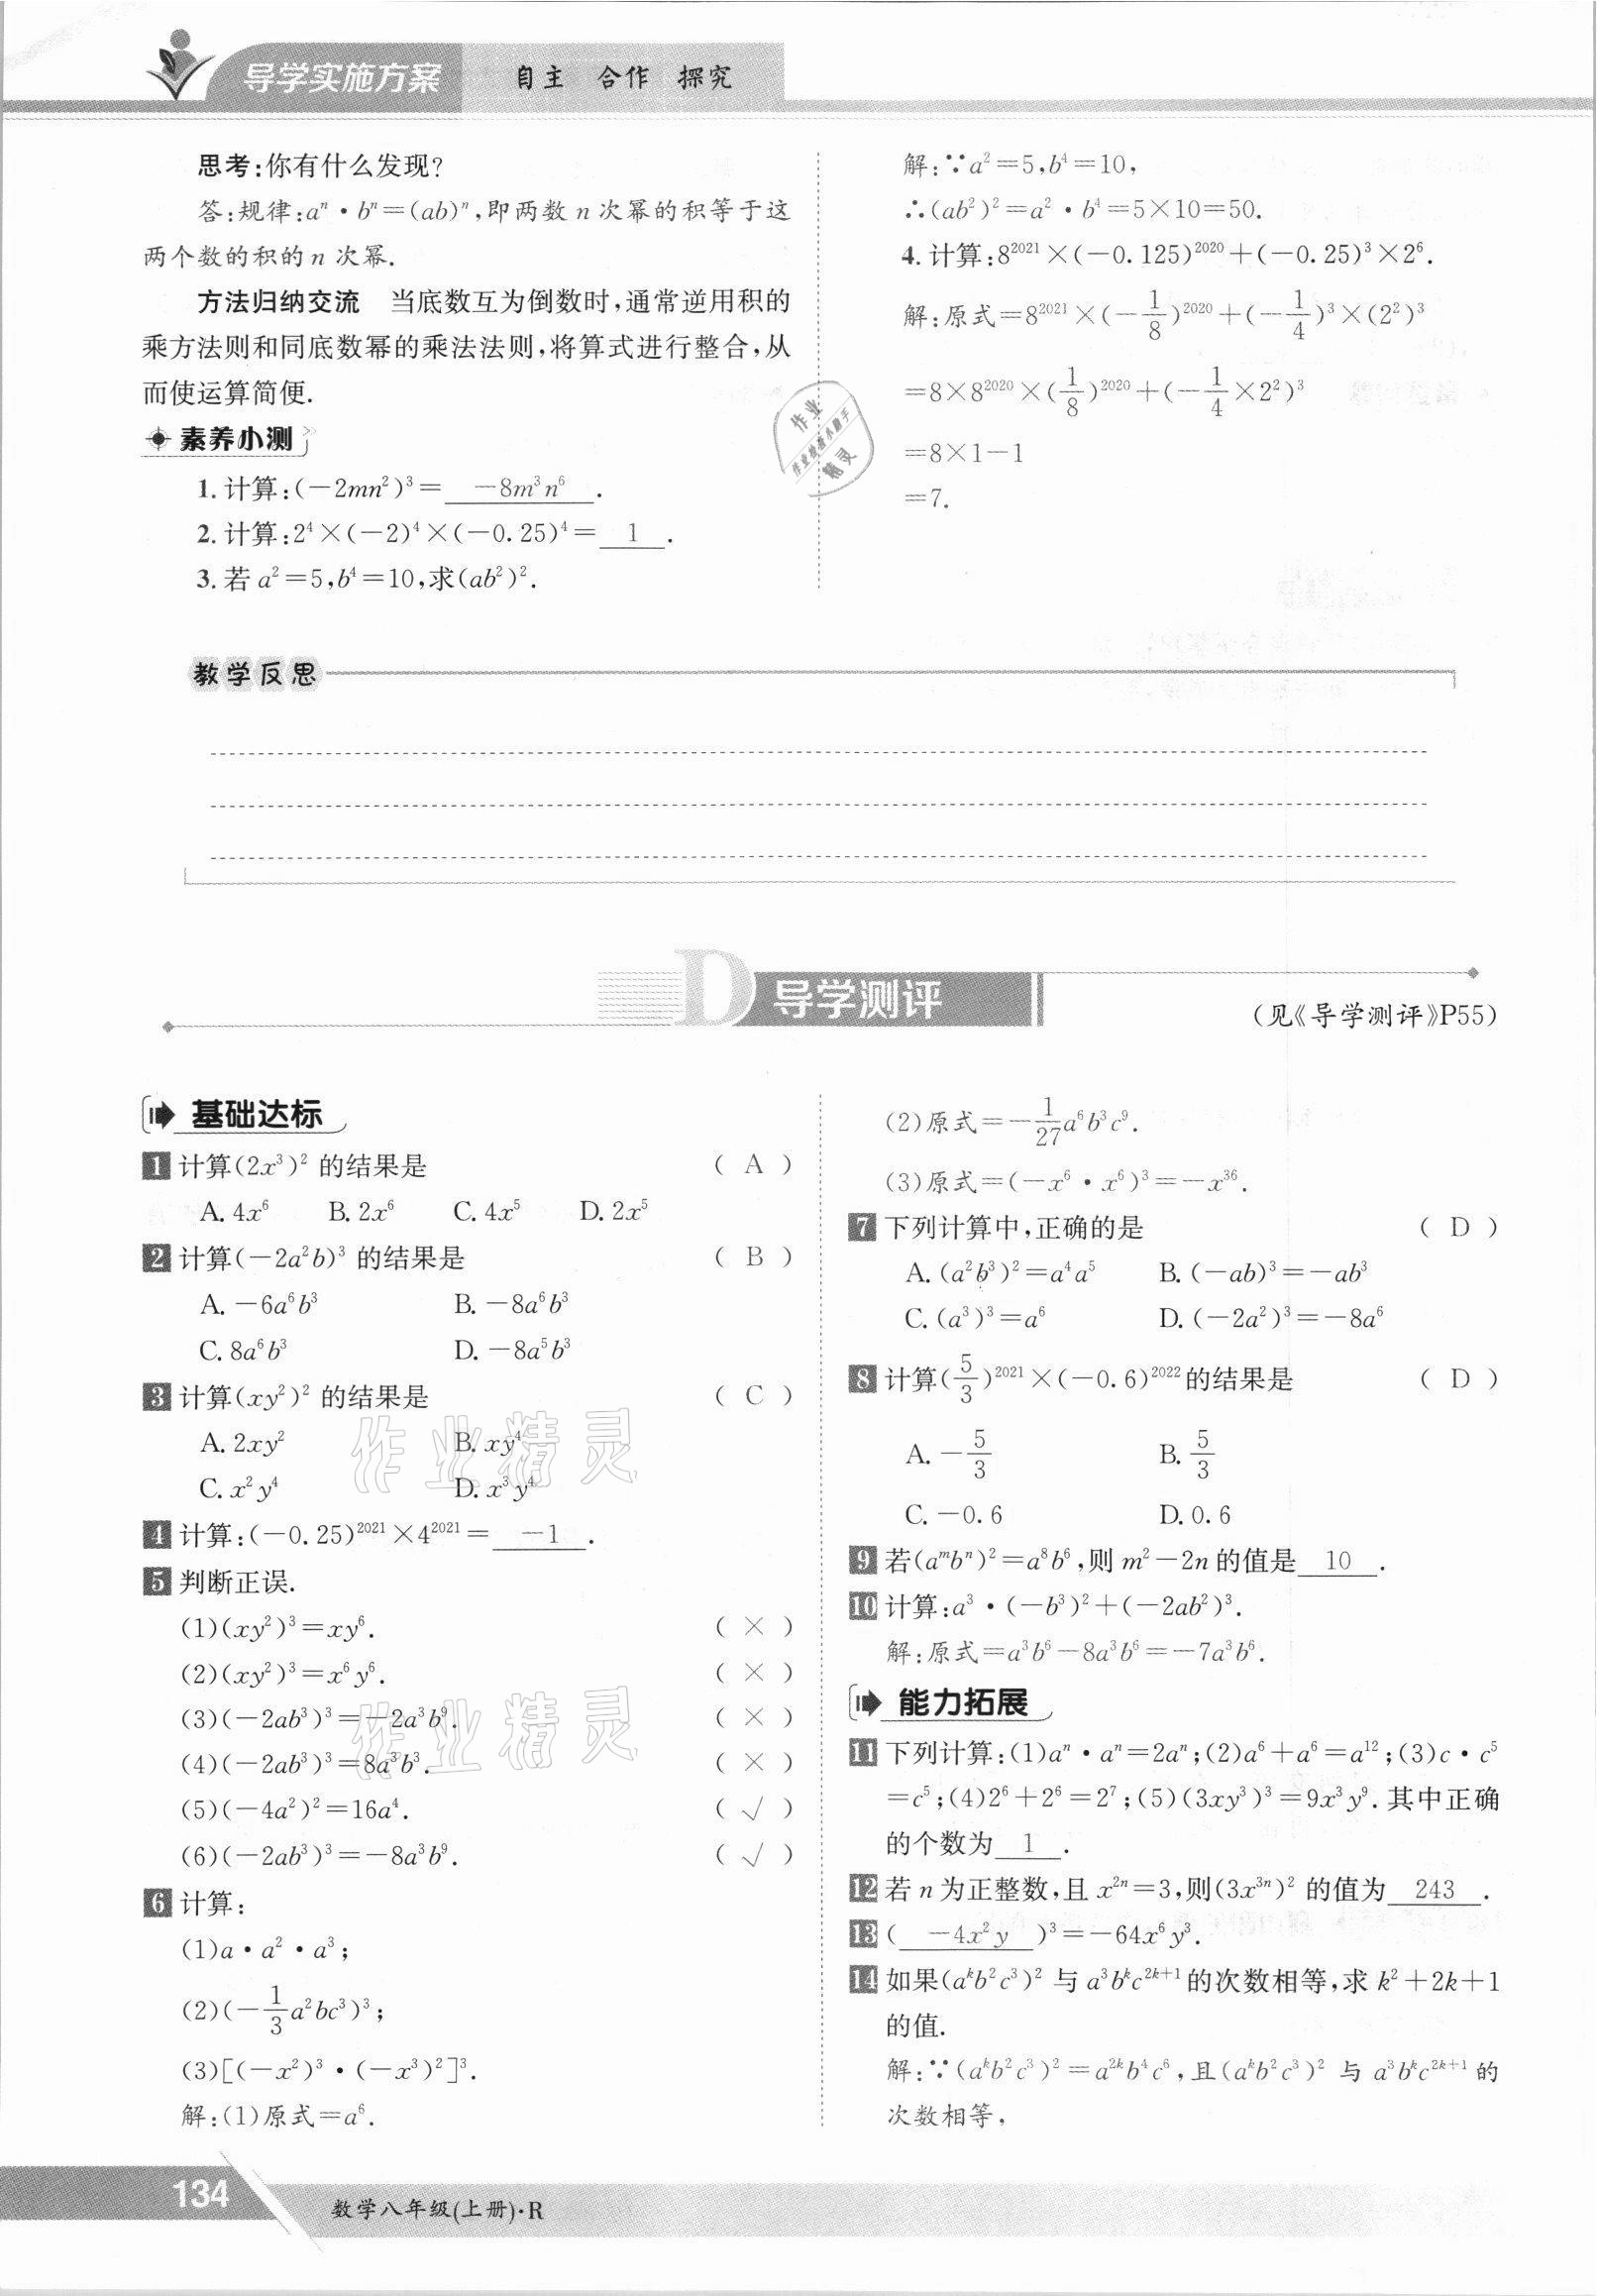 导学实施方案 自主 合作 探究
思考:你有什么发现?
答:规律:aⁿ·bⁿ=(ab)ⁿ,即两数 n 次幂的积等于这
两个数的积的 n 次幂.
方法归纳交流 当底数互为倒数时,通常逆用积的
乘方法则和同底数幂的乘法法则,将算式进行整合,从
而使运算简便.
素养小测
1. 计算:(-2mn²)³= -8m³n⁶ .
2. 计算:2⁴×(-2)⁴×(-0.25)⁴= 1 .
3. 若 a²=5,b⁴=10,求(ab²)².
解:∵a²=5,b⁴=10,
∴(ab²)²=a²·b⁴=5×10=50.
4. 计算:8²⁰²¹×(-0.125)²⁰²⁰+(-0.25)³×2⁶.
解:原式=8²⁰²¹×(-1/8)²⁰²⁰+(-1/4)³×(2²)³
=8×8²⁰²⁰×(1/8)²⁰²⁰+(-1/4×2²)³
=8×1-1
=7.
作业
作业检查小助手
精灵
教学反思
D 导学测评
(见《导学测评》P55)
基础达标
1 计算(2x³)² 的结果是 ( A )
A. 4x⁶ B. 2x⁶ C. 4x⁵ D. 2x⁵
2 计算(-2a²b)³ 的结果是 ( B )
A. -6a⁶b³ B. -8a⁶b³
C. 8a⁶b³ D. -8a⁵b³
3 计算(xy²)² 的结果是 ( C )
A. 2xy² B. xy⁴
C. x²y⁴ D. x³y⁴
作业精灵
4 计算:(-0.25)²⁰²¹×4²⁰²¹= -1 .
5 判断正误.
(1)(xy²)³=xy⁶. ( × )
(2)(xy²)³=x⁶y⁶. ( × )
(3)(-2ab³)³=-2a³b⁹. ( × )
作业精灵
(4)(-2ab³)³=8a³b³. ( × )
(5)(-4a²)²=16a⁴. ( √ )
(6)(-2ab³)³=-8a³b⁹. ( √ )
6 计算:
(1)a·a²·a³;
(2)(-1/3a²bc³)³;
(3)[(-x²)³·(-x³)²]³.
解:(1)原式=a⁶.
(2)原式=-1/27a⁶b³c⁹.
(3)原式=(-x⁶·x⁶)³=-x³⁶.
7 下列计算中,正确的是 ( D )
A. (a²b³)²=a⁴a⁵ B. (-ab)³=-ab³
C. (a³)³=a⁶ D. (-2a²)³=-8a⁶
8 计算(5/3)²⁰²¹×(-0.6)²⁰²²的结果是 ( D )
A. -5/3 B. 5/3
C. -0.6 D. 0.6
9 若(aᵐbⁿ)²=a⁸b⁶,则 m²-2n 的值是 10 .
10 计算:a³·(-b³)²+(-2ab²)³.
解:原式=a³b⁶-8a³b⁶=-7a³b⁶.
能力拓展
11 下列计算:(1)aⁿ·aⁿ=2aⁿ;(2)a⁶+a⁶=a¹²;(3)c·c⁵
=c⁵;(4)2⁶+2⁶=2⁷;(5)(3xy³)³=9x³y⁹.其中正确
的个数为 1 .
12 若 n 为正整数,且 x²ⁿ=3,则(3x³ⁿ)² 的值为 243 .
13 ( -4x²y )³=-64x⁶y³.
14 如果(aᵏb²c³)² 与 a³bᵏc²ᵏ⁺¹的次数相等,求 k²+2k+1
的值.
解:∵(aᵏb²c³)²=a²ᵏb⁴c⁶,且(aᵏb²c³)² 与 a³bᵏc²ᵏ⁺¹的
次数相等,
134
数学八年级(上册)·R